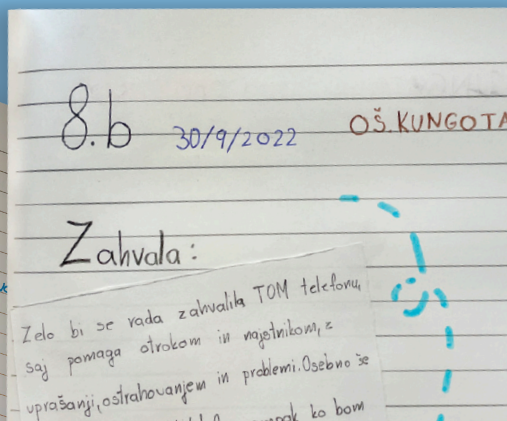 8.b 30/9/2022 OŠ KUNGOTA
Zahvala:
Zelo bi se rada zahvalila TOM telefonu,
saj pomaga otrokom in najstnikom, z
uprašanji, ostrahovanjem in problemi. Osebno še
ko bom